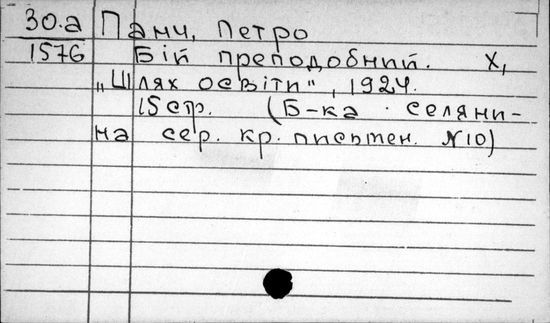 30.а Панч, Петро
1576 Бій преподобний. Х,
„Шлях освіти", 1924.
15стр. (Б-ка селяни-
на сер. кр. письмен. №10)